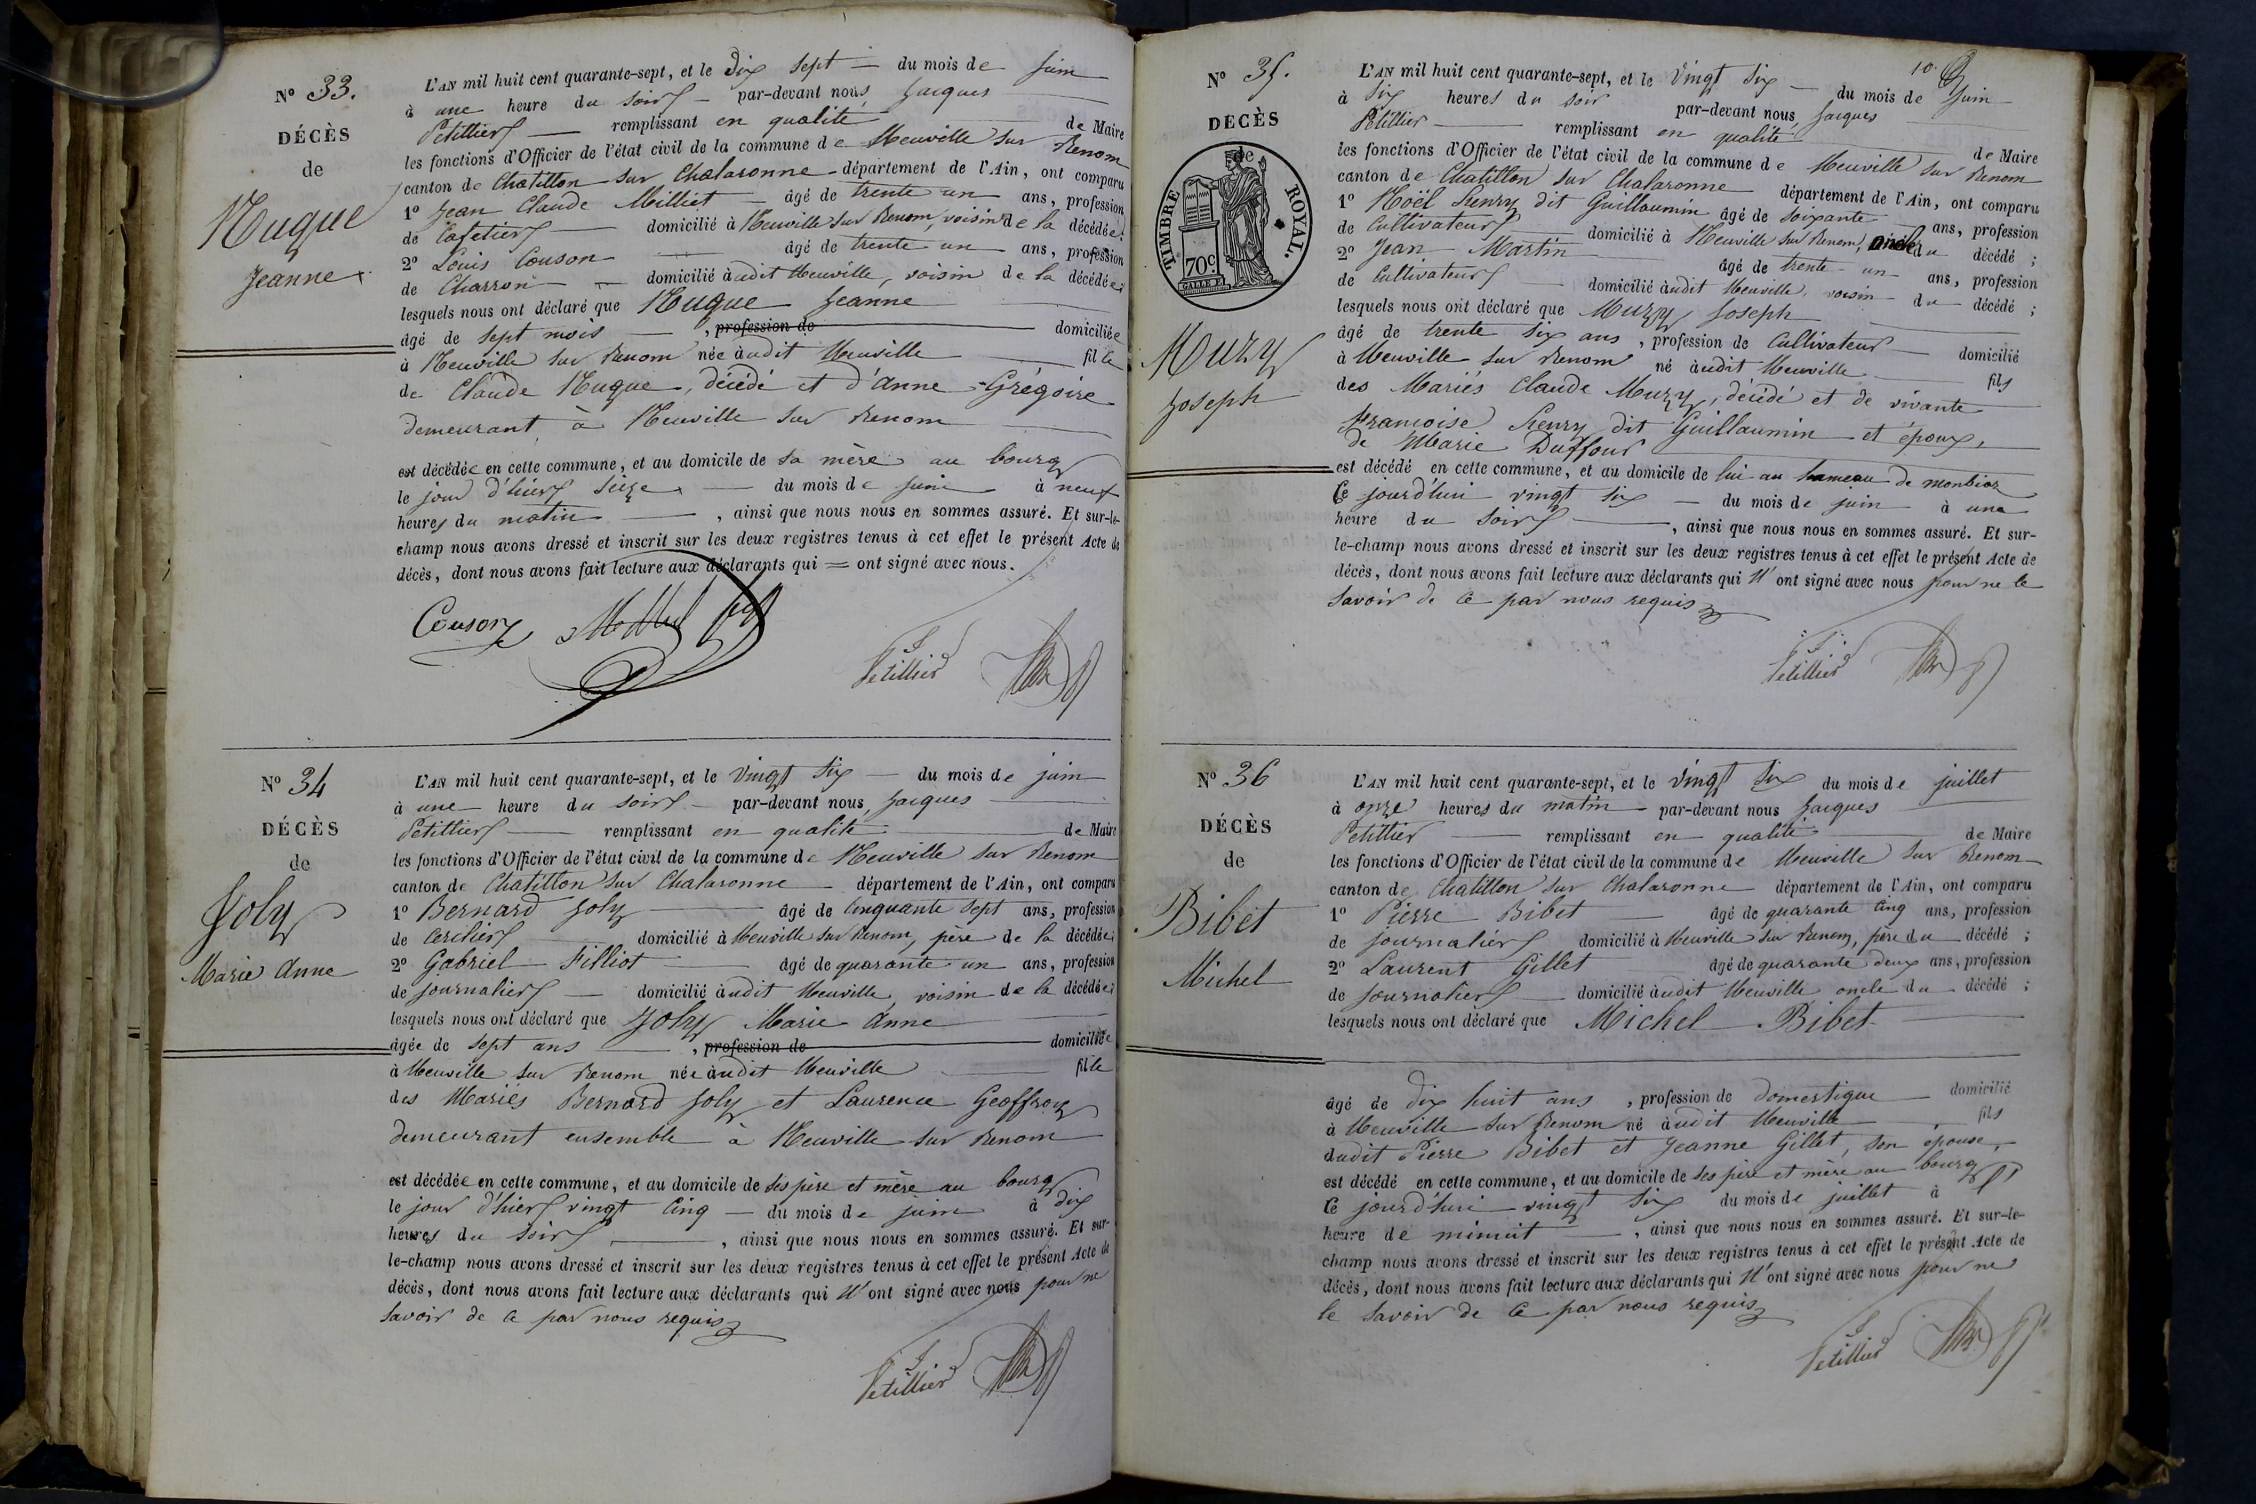 N° 33.
DÉCÈS
de
Nuque
Jeanne
L'AN mil huit cent quarante-sept, et le Dix sept — du mois de juin
à une heure du soir — par-devant nous, Jacques
Petillier — remplissant en qualité de Maire
les fonctions d'Officier de l'état civil de la commune de Neuville sur Renom
canton de Chatillon sur Chalaronne département de l'Ain, ont comparu
1° Jean Claude Milliet — âgé de trente un ans, profession
de Cafetier domicilié à Neuville sur Renom, voisin de la décédée;
2° Louis Couson âgé de trente un ans, profession
de Charron — domicilié àudit Neuville, voisin de la décédée;
lesquels nous ont déclaré que Nuque Jeanne
âgé de sept mois , profession de domiciliée
à Neuville sur Renom née àudit Neuville fille
de Claude Nuque, décédé et d'Anne Grégoire
demeurant à Neuville sur Renom
est décédée en cette commune, et au domicile de sa mère au bourg
le jour d'hier seize — du mois de juin à neuf
heures du matin , ainsi que nous nous en sommes assuré. Et sur-le-
champ nous avons dressé et inscrit sur les deux registres tenus à cet effet le présent Acte de
décès, dont nous avons fait lecture aux déclarants qui = ont signé avec nous.
Couson
Petillier
N° 34
DÉCÈS
de
Joly
Marie Anne
L'AN mil huit cent quarante-sept, et le Vingt six — du mois de juin
à une heure du soir — par-devant nous, Jacques
Petillier — remplissant en qualité de Maire
les fonctions d'Officier de l'état civil de la commune de Neuville sur Renom
canton de Chatillon sur Chalaronne — département de l'Ain, ont comparu
1° Bernard Joly âgé de Cinquante sept ans, profession
de domicilié à Neuville sur Renom, père de la décédée;
2° Gabriel Filliot âgé de quarante un ans, profession
de journalier — domicilié àudit Neuville, voisin de la décédée;
lesquels nous ont déclaré que Joly Marie Anne
âgée de sept ans , profession de domiciliée
à Neuville sur Renom née àudit Neuville fille
des Mariés Bernard Joly et Laurence Geoffroy
demeurant ensemble à Neuville sur Renom
est décédée en cette commune, et au domicile de ses père et mère au bourg
le jour d'hier vingt cinq — du mois de juin à dix
heures du soir , ainsi que nous nous en sommes assuré. Et sur-
le-champ nous avons dressé et inscrit sur les deux registres tenus à cet effet le présent Acte de
décès, dont nous avons fait lecture aux déclarants qui N'ont signé avec nous pour ne
savoir de ce par nous requis
Petillier
10.
N° 35.
DÉCÈS
de
TIMBRE ROYAL.
70c
Muzy
Joseph
L'AN mil huit cent quarante-sept, et le Vingt six — du mois de Juin
à six heures du soir par-devant nous, Jacques
Petillier remplissant en qualité de Maire
les fonctions d'Officier de l'état civil de la commune de Neuville sur Renom
canton de Chatillon sur Chalaronne département de l'Ain, ont comparu
1° Noël Henry dit Guillaumin âgé de soixante ans, profession
de Cultivateur domicilié à Neuville sur Renom, oncle du décédé ;
2° Jean Martin âgé de trente un ans, profession
de Cultivateur domicilié àudit Neuville, voisin du décédé ;
lesquels nous ont déclaré que Muzy Joseph
âgé de trente six ans , profession de Cultivateur domicilié
à Neuville sur Renom né àudit Neuville fils
des Mariés Claude Muzy, décédé et de vivante
Françoise Henry dit Guillaumin et époux,
de Marie Duffour
est décédé en cette commune, et au domicile de lui au hameau de
Ce jourd'hui vingt six — du mois de juin à une
heure du soir , ainsi que nous nous en sommes assuré. Et sur-
le-champ nous avons dressé et inscrit sur les deux registres tenus à cet effet le présent Acte de
décès, dont nous avons fait lecture aux déclarants qui N'ont signé avec nous pour ne le
savoir de ce par nous requis
Petillier
N° 36
DÉCÈS
de
Bibet
Michel
L'AN mil huit cent quarante-sept, et le Vingt six du mois de juillet
à onze heures du matin par-devant nous Jacques
Petillier remplissant en qualité de Maire
les fonctions d'Officier de l'état civil de la commune de Neuville sur Renom
canton de Chatillon sur Chalaronne département de l'Ain, ont comparu
1° Pierre Bibet âgé de quarante cinq ans, profession
de journalier domicilié à Neuville sur Renom, père du décédé ;
2° Laurent Gillet âgé de quarante deux ans, profession
de journalier domicilié àudit Neuville oncle du décédé ;
lesquels nous ont déclaré que Michel Bibet
âgé de dix huit ans , profession de domestique domicilié
à Neuville sur Renom né àudit Neuville fils
dudit Pierre Bibet et Jeanne Gillet, son épouse,
est décédé en cette commune, et au domicile de ses père et mère au bourg
Ce jourd'hui vingt six du mois de juillet à
heure de minuit , ainsi que nous nous en sommes assuré. Et sur-le-
champ nous avons dressé et inscrit sur les deux registres tenus à cet effet le présent Acte de
décès, dont nous avons fait lecture aux déclarants qui N'ont signé avec nous pour ne
le savoir de ce par nous requis
Petillier